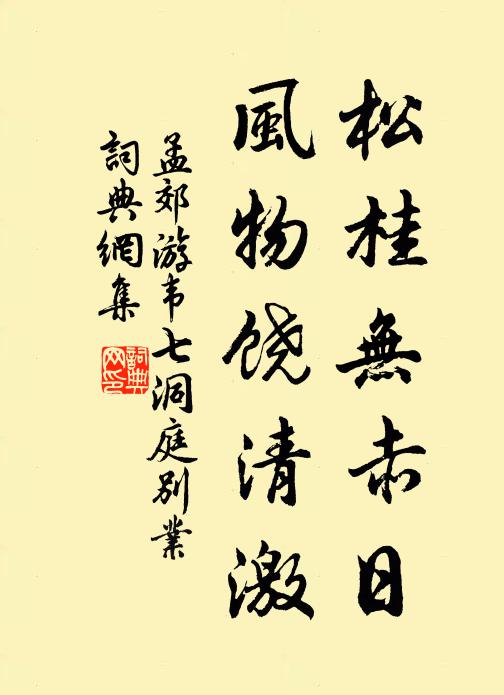 松桂無赤日
風物饶清激
孟郊游韦七洞庭別業
詞典網集
詞典网印